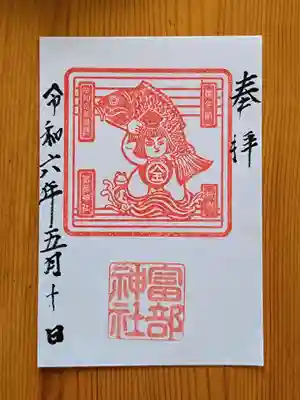 奉拝
金
富部
神社
令和六年五月十日